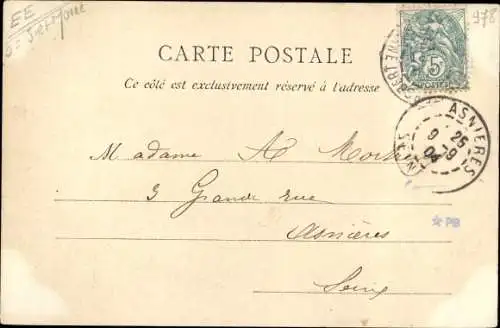 EE
478
CARTE POSTALE
Ce côté est exclusivement réservé à l'adresse
5
POSTES
ASNIERES
9 25
-9
04
SEINE
Madame A
3 Grande rue
Asnières
Seine
PB